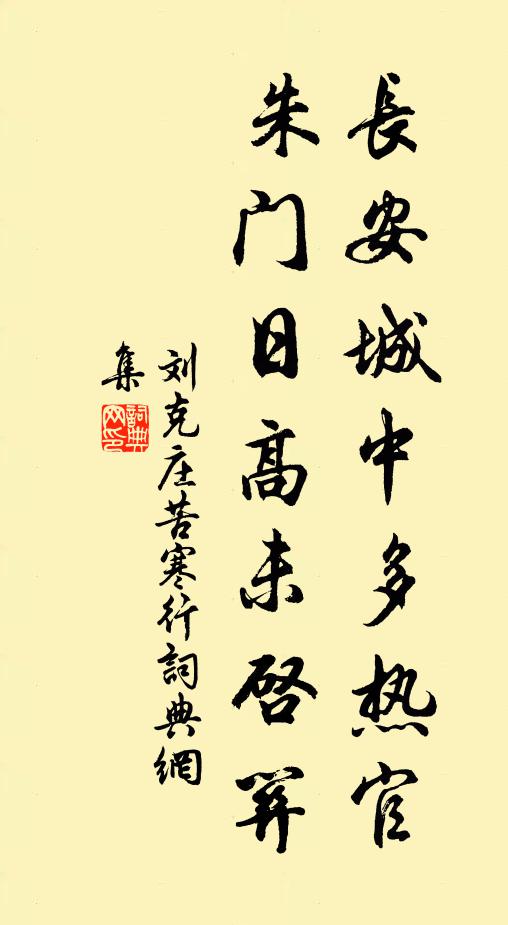 長安城中多热官
朱门日高未啓关
刘克庄苦寒行詞典網
集
詞典
网印